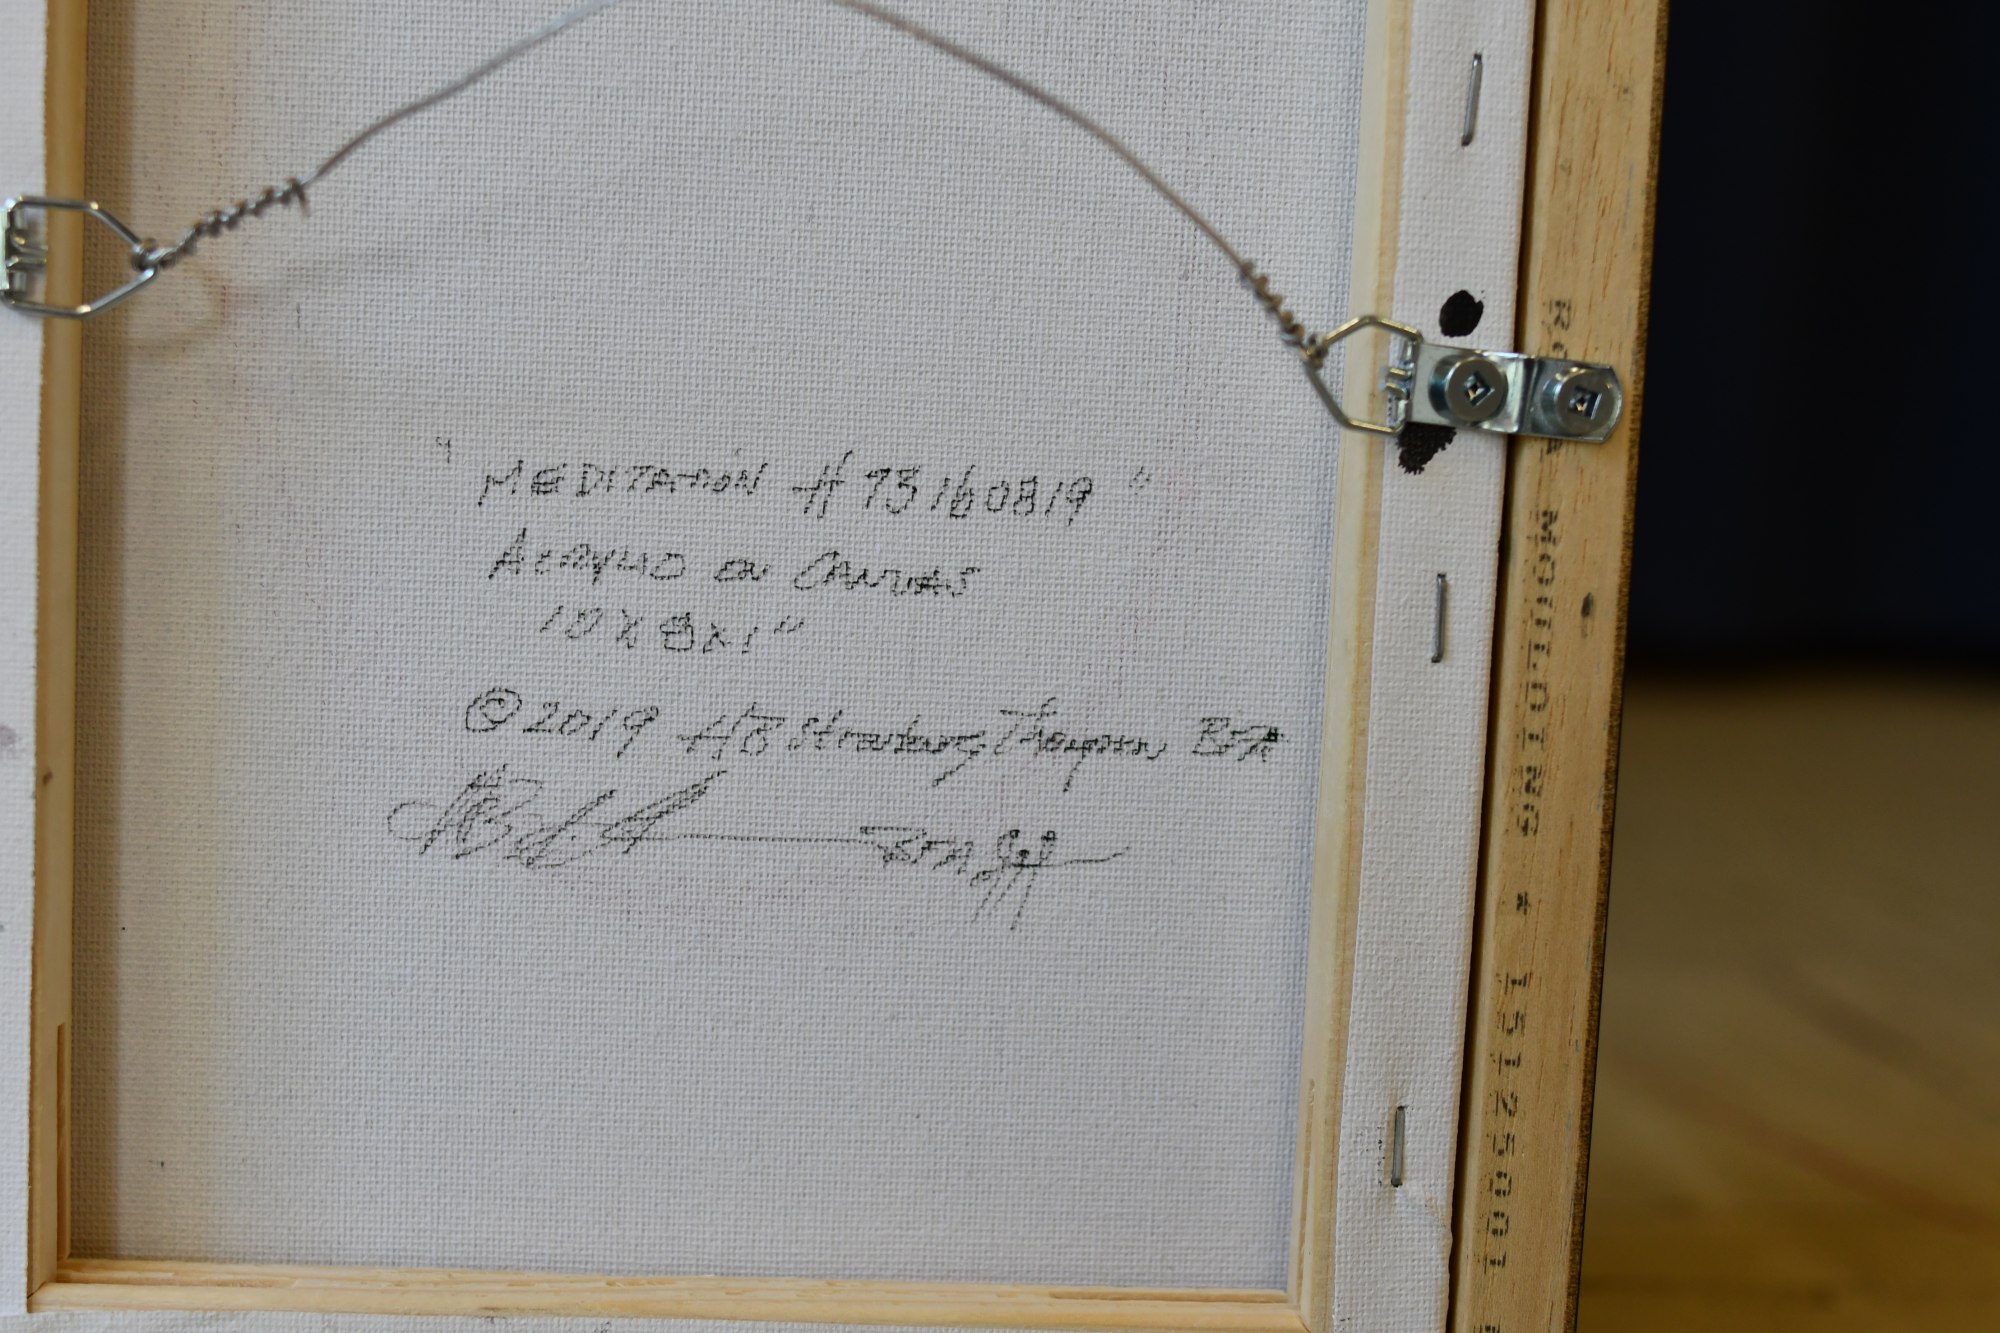 "MEDITATION # 73160819"
ACRYLIC ON CANVAS
10 X 8 X 1"
© 2019 HB Thompson BFA
MOULDING * 15125001